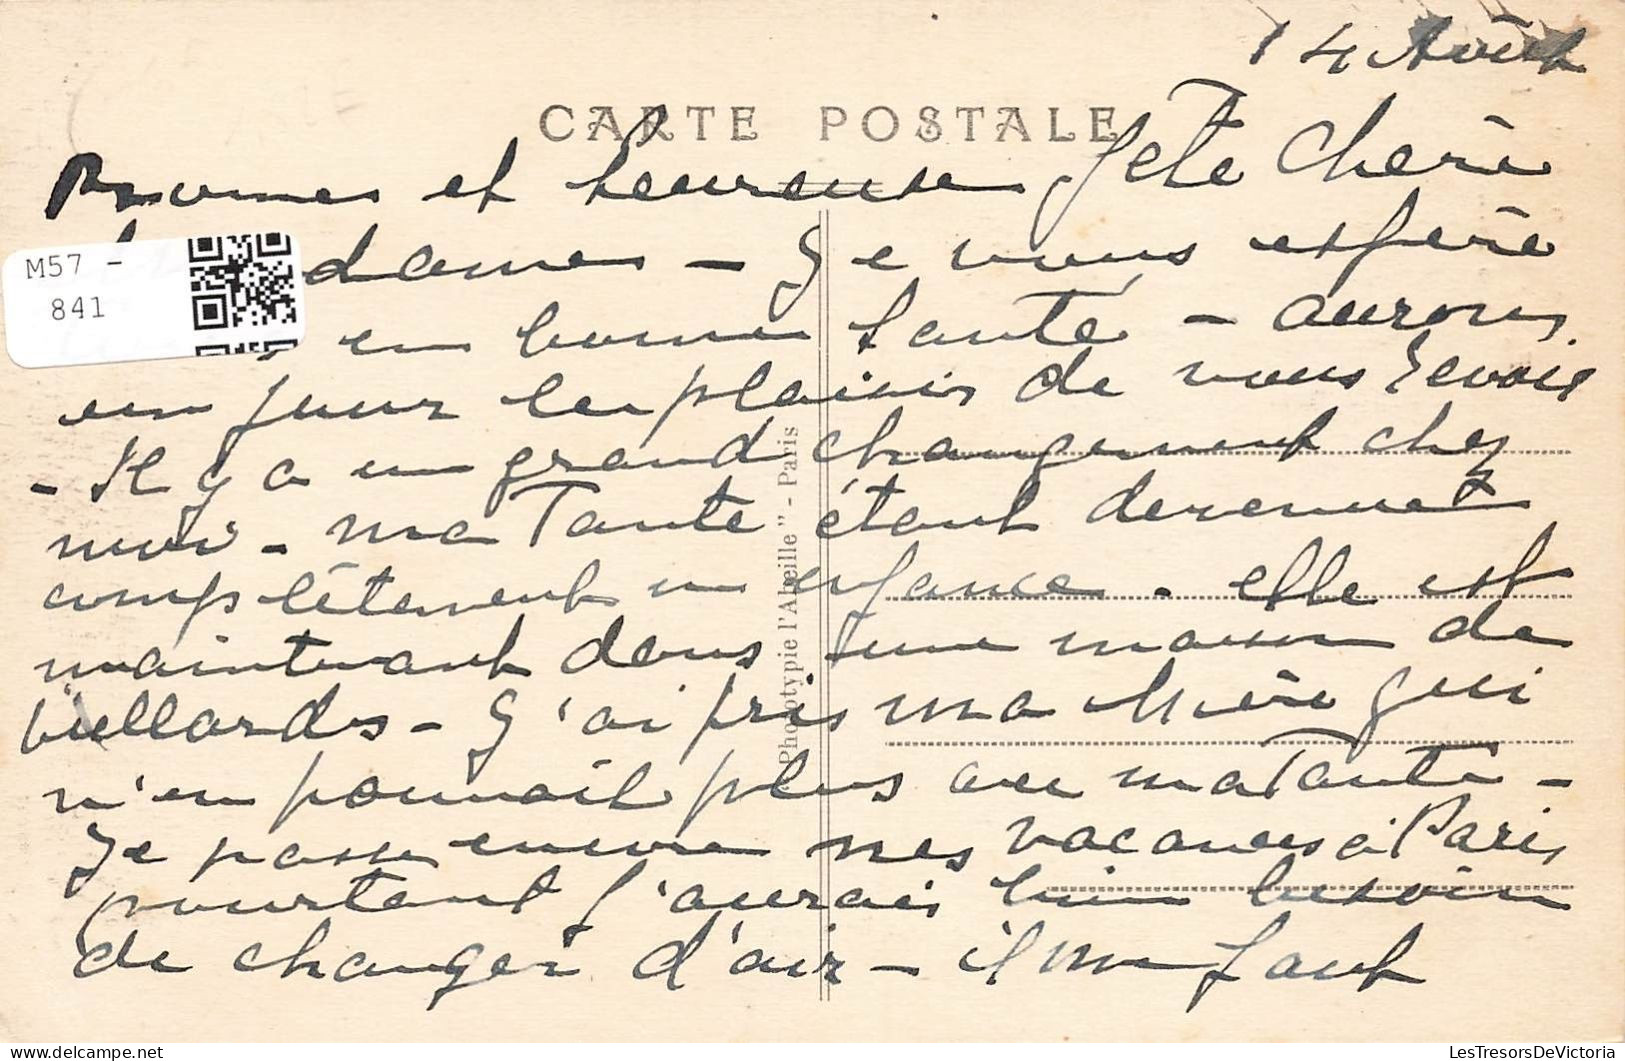 14 Août
CARTE POSTALE
Bonnes et heureuse fête Chère
dames - Je vous espère
en bonne santé - aurons
un jour le plaisir de vous revoir
- Il y a un grand changement chez
moi - ma Tante étant devenue
complètement en enfance - elle est
maintenant dans une maison de
vieillards - J'ai pris ma Mère qui
n'en pouvait plus avec ma Tante -
Je passe encore mes vacances à Paris
pourtant j'aurais bien besoin
de changer d'air - il me faut
"Phototypie l'Abeille" - Paris
M57 -
841
LesTresorsDeVictoria